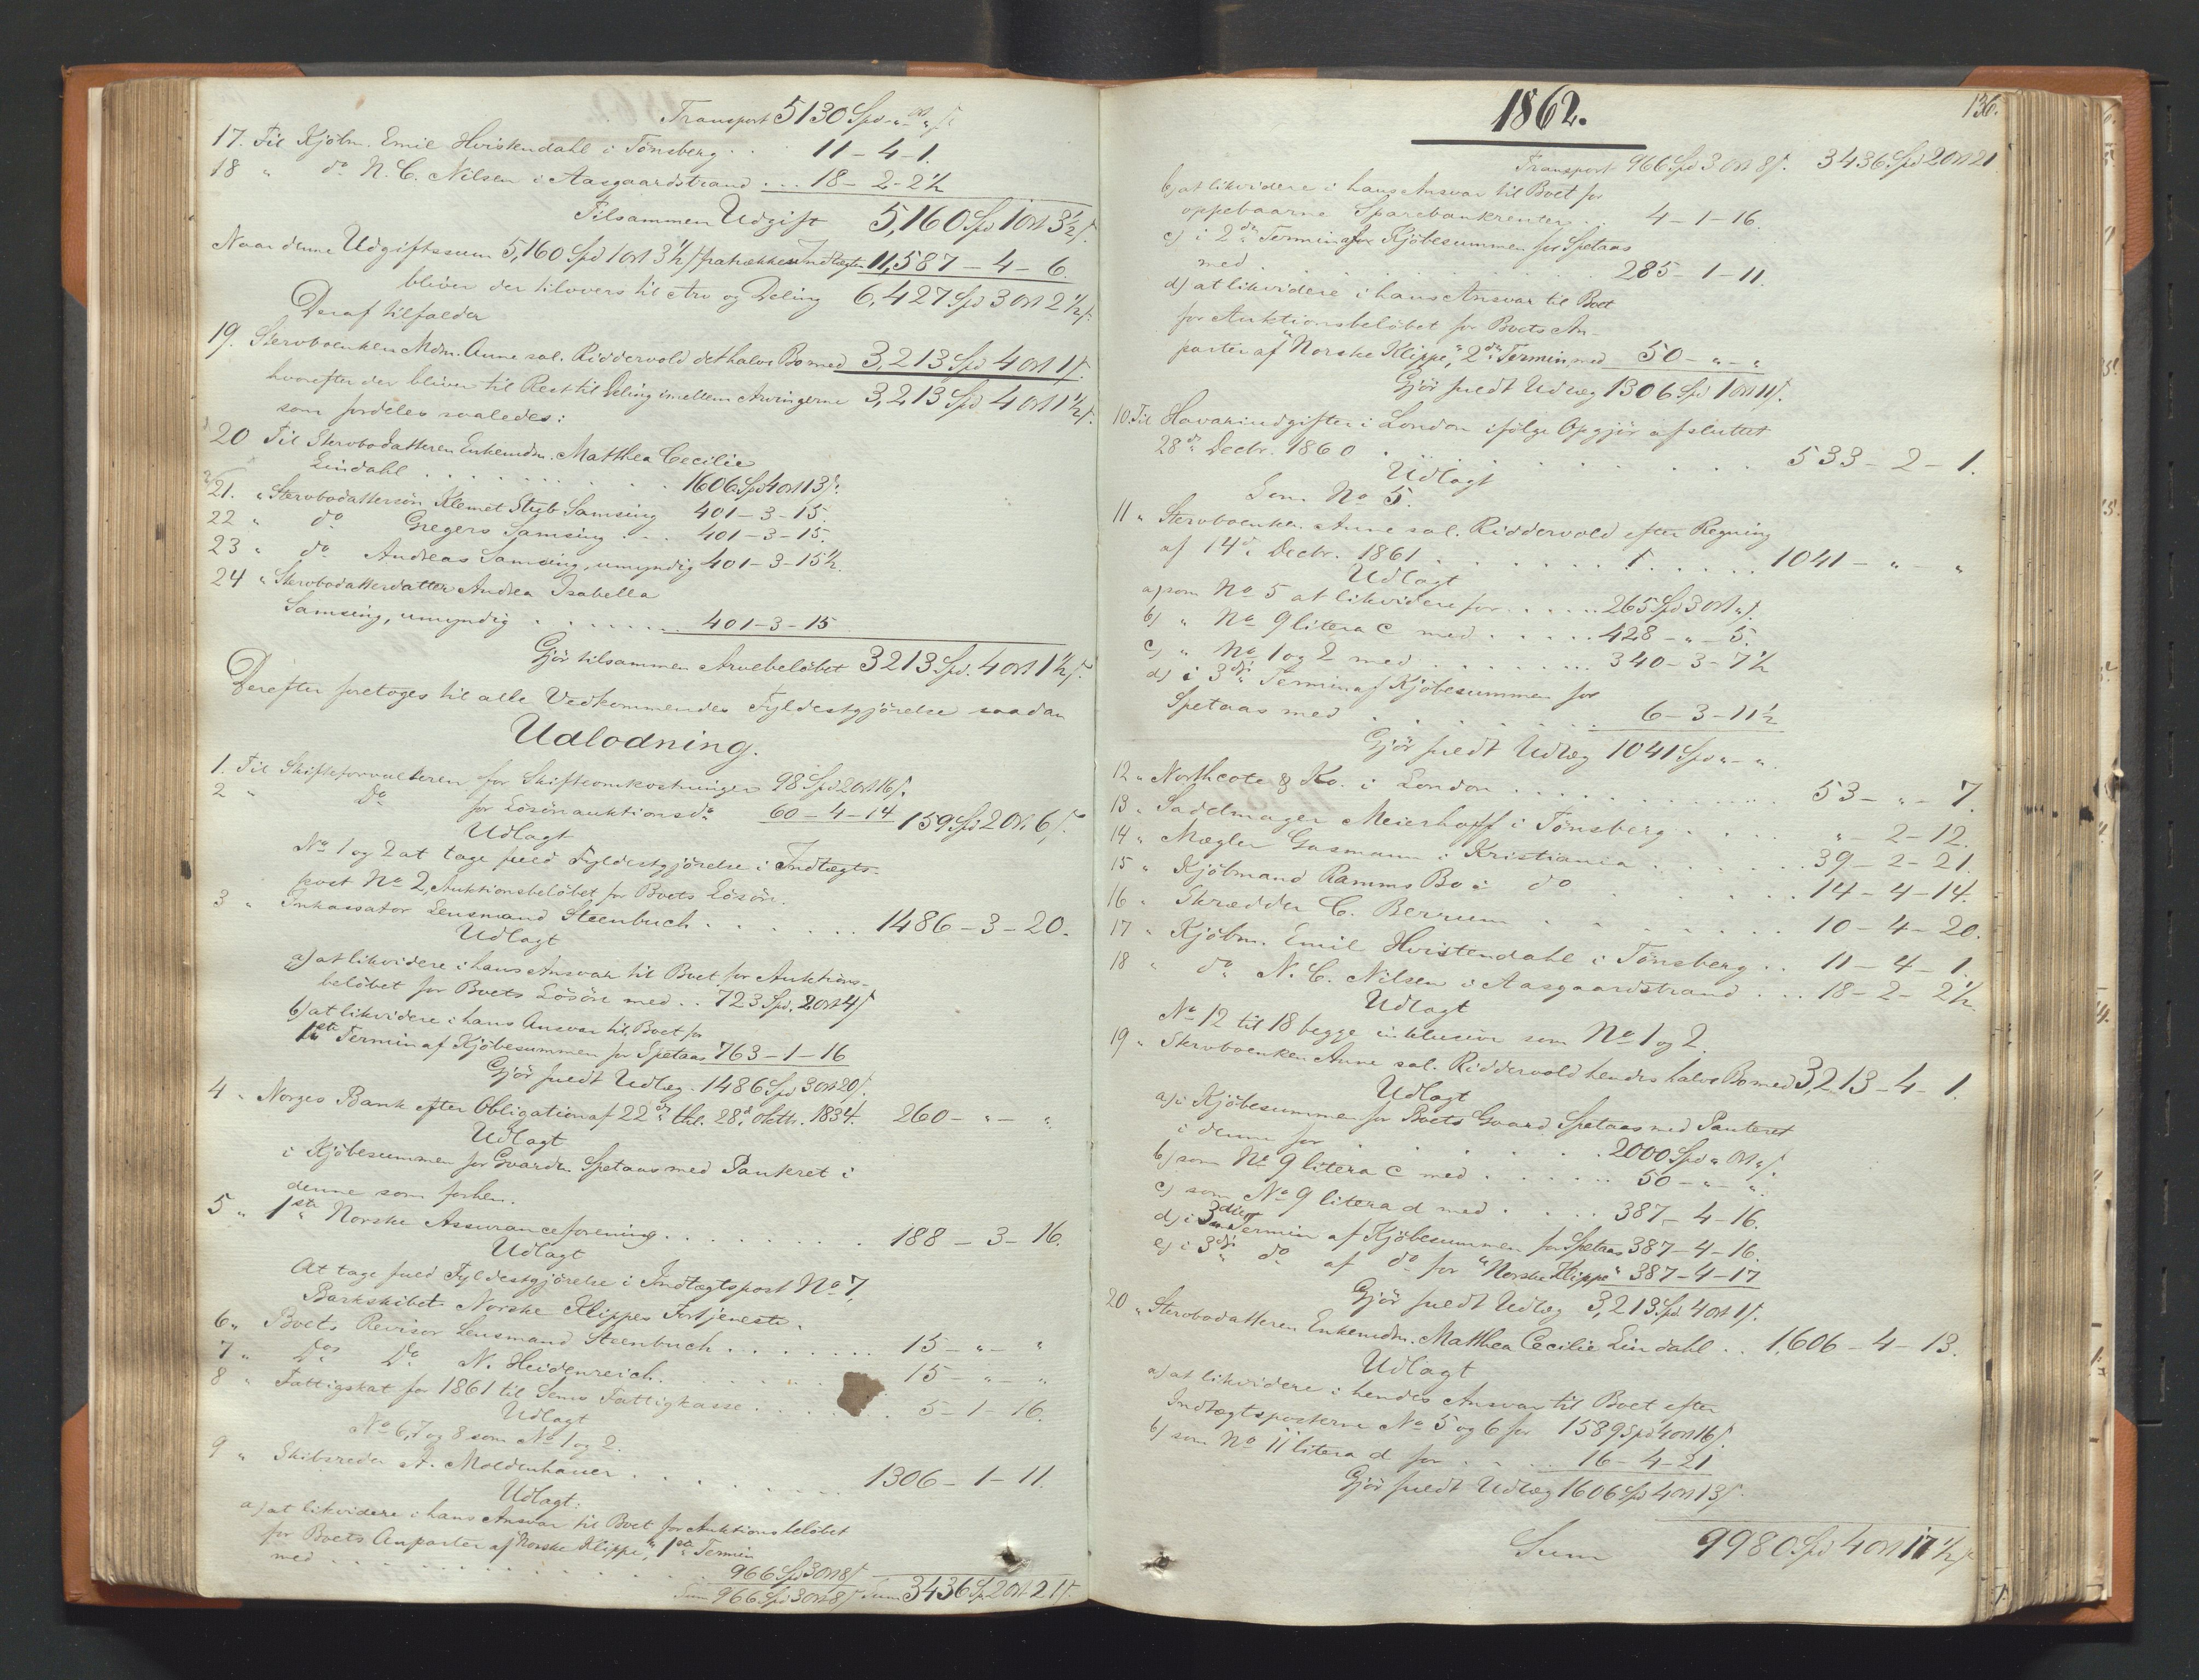 Transport 5130 Spd - " - Ort " ß
17. Til Kjöbm. Emil Hvistendahl i Tönsberg . . . 11 - 4 - 1.
18 " do N. C. Nilsen i Aasgaardstrand . . . 18 - 2 - 2½
Tilsammen Udgift 5,160 Spd 1 Ort 3½ ß.
Naar denne Udgiftssum 5,160 Spd 1 Ort 3½ ß fratrækkes Indtægten 11,587 - 4 - 6.
bliver der tilovers til Arv og Deling 6,427 Spd 3 Ort 2½ ß.
Deraf tilfalder
19. Stervboenken Mdm. Anne sal. Riddervold det halve Bo med 3,213 Spd 4 Ort 1 ß.
hvorefter der bliver til Rest til Deling imellem Arvingerne 3,213 Spd 4 Ort 1½ ß.
som fordeles saaledes:
20 Til Stervbodatteren Enkemdm. Matthea Cecilie
Lindahl . . . . . . . . . 1606 Spd 4 Ort 13 ß.
21. " Stervbodattersön Klemet Stub Samsing 401 - 3 - 15.
22 " do Gregers Samsing . . . 401 - 3 - 15.
23 " do Andreas Samsing, umyndig 401 - 3 - 15½.
24 " Stervbodatterdatter Andrea Isabella
Samsing, umyndig . . . . . . . 401 - 3 - 15
Gjör tilsammen Arvebelöbet 3213 Spd. 4 Ort 1½ ß.
Derefter foretoges til alle Vedkommendes Fyldestgjörelse saadan
Udlodning.
1. Til Skifteforvalteren for Skifteomkostninger 98 Spd 2 Ort 16 ß.
2 " do for Lösöreauktionsdo 60 - 4 - 14 159 Spd 2 Ort 6 ß.
Udlagt
No 1 og 2 at tage fuld Fyldestgjörelse i Indtægts-
post No 2, Auktionsbelöbet for Boets Lösöre.
3 " Inkassator Lensmand Steenbuch . . . . . . . 1486 - 3 - 20.
Udlagt
a) at likvidere i hans Ansvar til Boet for Auktions-
belöbet for Boets Lösöre med . . 723 Spd. 2 Ort 4 ß
b) at likvidere i hans Ansvar til Boet for
1ste Termin af Kjöbesummen for Spetaas 763 - 1 - 16
Gjör fuldt Udlæg . 1486 Spd 3 Ort 20 ß.
4 " Norges Bank efter Obligation af 22de thl. 28d. Oktb. 1834. 260 - " - ".
Udlagt
i Kjöbesummen for Gaarden Spetaas med Panteret i
denne som forhen.
5 " 1ste Norske Assuranceforening . . . . . . . . 188 - 3 - 16.
Udlagt
At tage fuld Fyldestgjörelse i Indtægtspost No 7,
Barkskibet Norske Klippes Fortjeneste.
6 " Boets Revisor Lensmand Steenbuch . . . . . . . 15 - " - "
7 " Dos Do N. Heidenreich. . . . . . . . 15 - " - "
8 " Fattigskat for 1861 til Sems Fattigkasse . . . . . . 5 - 1 - 16.
Udlagt
No 6, 7 og 8 som No 1 og 2.
9 " Skibsreder A. Moldenhauer . . . . . . . . 1306 - 1 - 11.
Udlagt:
a) at likvidere i hans Ansvar til Boet for Auktionsbelöbet
for Boets Anparter af "Norske Klippe", 1ste Termin
med . . . . . . . . . . . . . 966 Spd 3 Ort 8 ß
Sum 966 Spd 3 Ort 8 ß Sum 3436 Spd 2 Ort 21 ß.
1862.
136.
Transport 966 Spd 3 Ort 8 ß. 3436 Spd 2 Ort 21
b) at likvidere i hans Ansvar til Boet for
oppebaarne Sparebankrenter . . 4 - 1 - 16.
c) i 2den Termin af Kjöbesummen for Spetaas
med . . . . . . . . . . 285 - 1 - 11.
d) at likvidere i hans Ansvar til Boet
for Auktionsbelöbet for Boets An-
parter af "Norske Klippe," 2den Termin, med 50 - " - "
Gjör fuldt Udlæg 1306 Spd 1 Ort 11 ß.
10. Til Havariudgifter i London ifölge Opgjör afsluttet
28de Decbr. 1860 . . . . . . . . . . . 533 - 2 - 1.
Udlagt
Som No 5.
11 " Stervboenken Anne sal. Riddervold efter Regning
af 14d. Decbr. 1861 . . . . . . . . . . . 1041 - " - "
Udlagt
a) som No 5 at likvidere for . . . . . 265 Spd 3 Ort " ß.
b) " No 9 litera c med . . . . . 428 - " - 5.
c) " No 1 og 2 med . . . . . . . 340 - 3 - 7½
d) i 3die Termin af Kjöbesummen for
Spetaas med . . . . . . . . 6 - 3 - 11½
Gjör fuldt Udlæg 1041 Spd " - ".
12 " Northcote & Ko. i London . . . . . . . . . . . 53 - " - 7.
13 " Sadelmager Meierhoff i Tönsberg . . . . " - 2 - 12.
14 " Mægler Gasmann i Kristiania . . . . . . 39 - 2 - 21.
15 " Kjöbmand Ramms Bo i do . . . . . 14 - 4 - 14.
16 " Skrædder C. Berrum . . . . . . . . 10 - 4 - 20.
17 " Kjöbm. Emil Hvistendahl i Tönsberg . . 11 - 4 - 1.
18 " do N. C. Nilsen i Aasgaardstrand . . . 18 - 2 - 2½
Udlagt
No 12 til 18 begge inklusive som No 1 og 2.
19 " Stervboenken Anne sal. Riddervold hendes halve Bo med 3,213 - 4 - 1.
Udlagt
a) i Kjöbesummen for Boets Gaard Spetaas med Panteret
i denne for . . . . . . . . . 2000 Spd " Ort " ß.
b) som No 9 litera c med . . . . . . 50 - " - ".
c) som No 9 litera d med . . . . . 387 - 4 - 16.
d) i 3die Termin af Kjöbesummen for Spetaas 387 - 4 - 16
e) i 3die do af do for "Norske Klippe" 387 - 4 - 17
Gjör fuldt Udlæg 3,213 Spd 4 Ort 1 ß.
20 " Stervbodatteren Enkemdm. Matthea Cecilie Lindahl . . 1,606 - 4 - 13.
Udlagt
a) at likvidere i hendes Ansvar til Boet efter
Indtægtsposterne No 5 og 6 for 1589 Spd 4 Ort 16 ß.
b) som No 11 litera d for . . . . 16 - 4 - 21
Gjör fuldt Udlæg 1606 Spd 4 Ort 13 ß.
Sum 9980 Spd 4 Ort 17½ ß